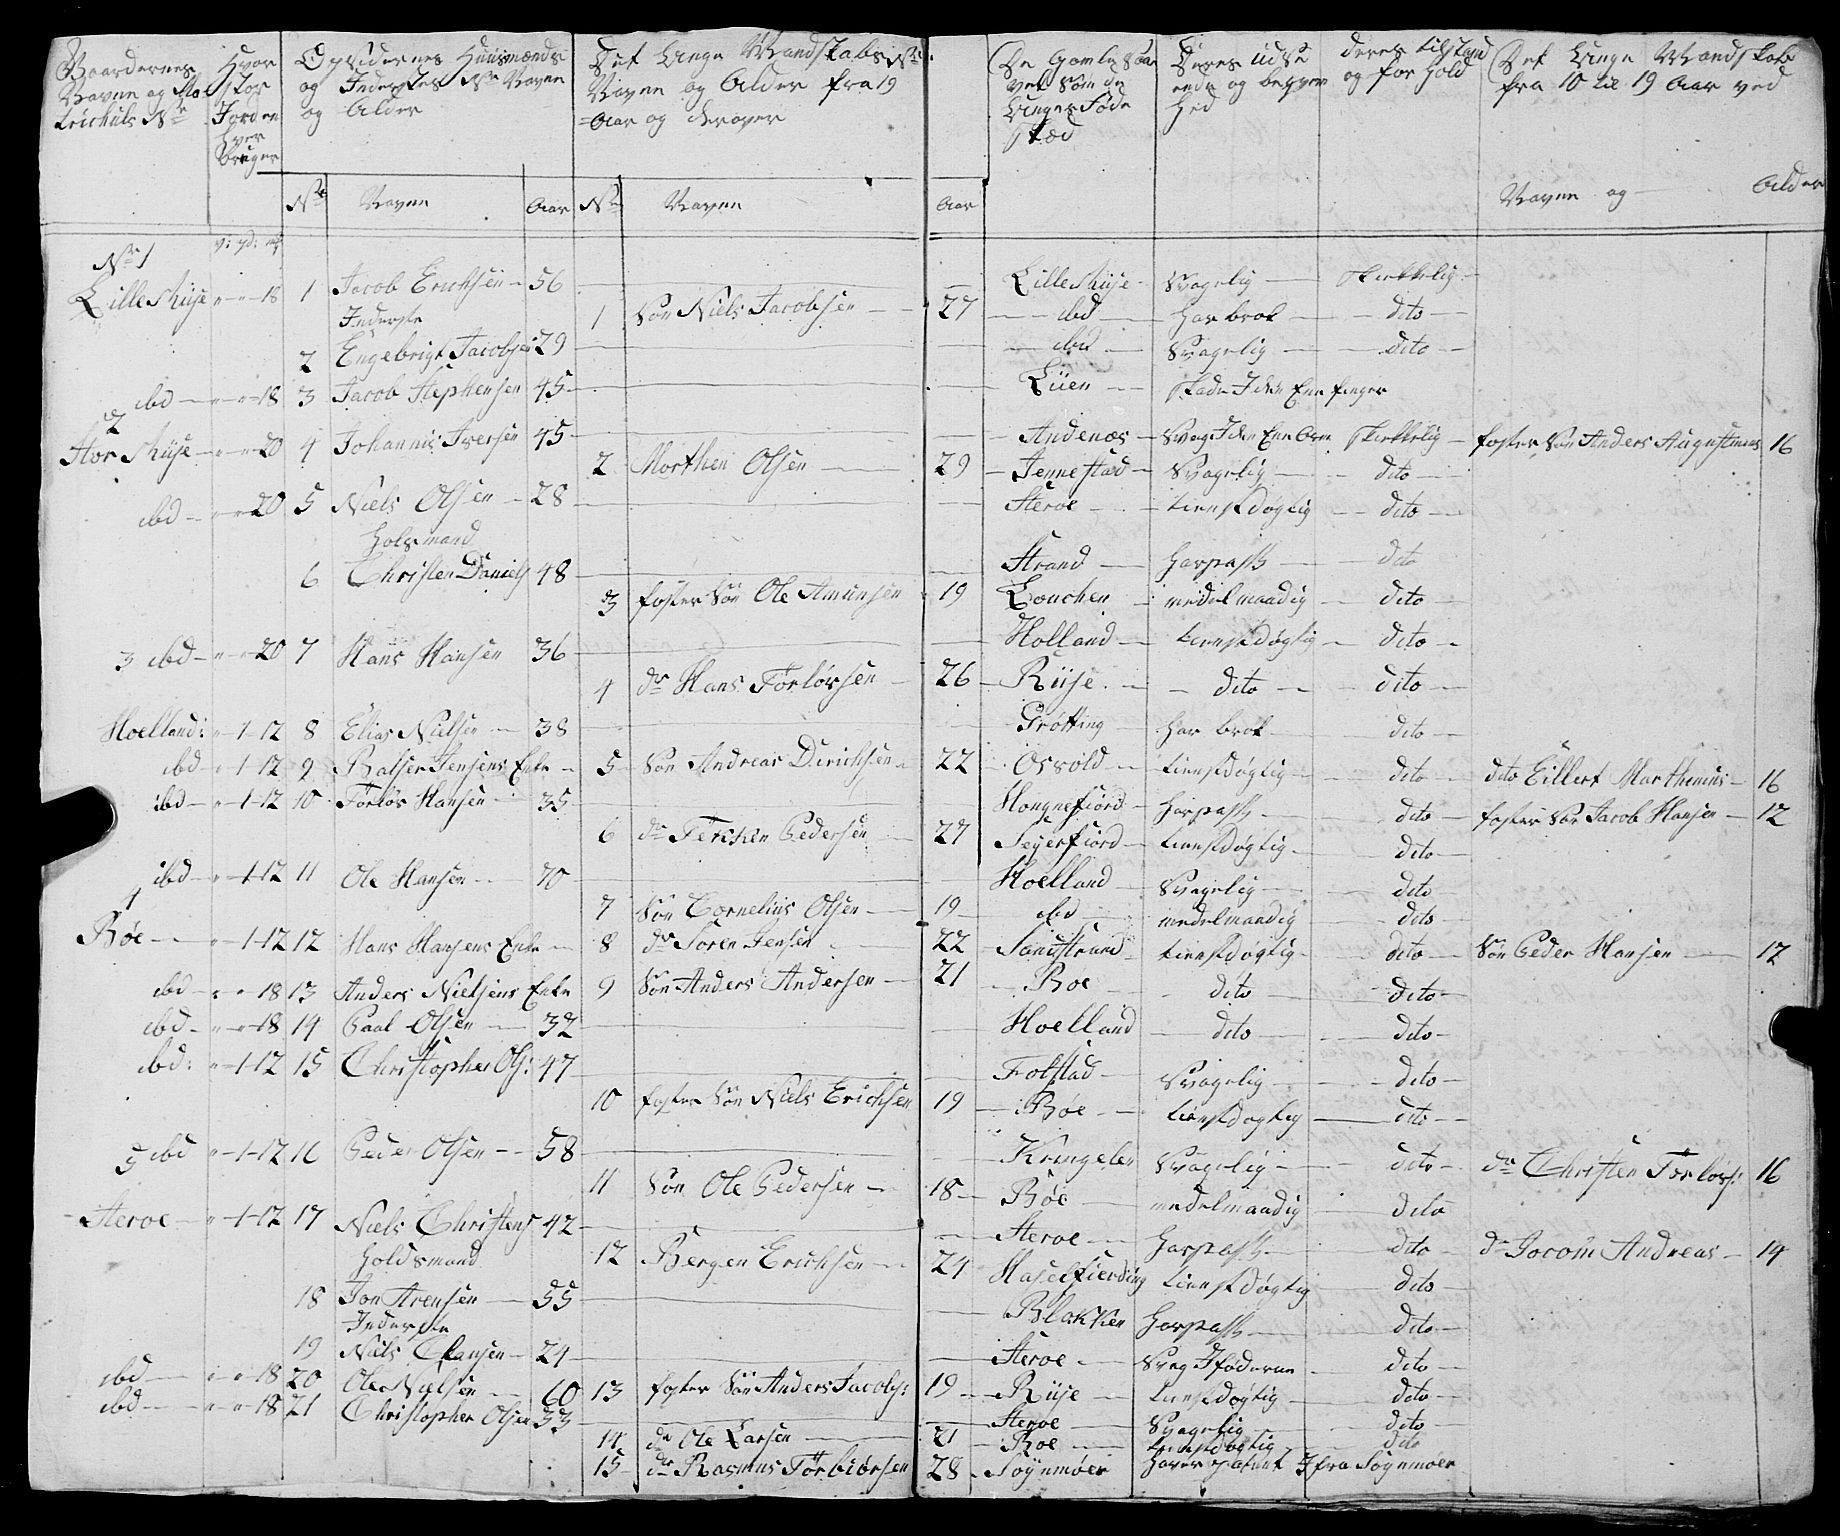 Gaardernes Navne og Matrichuls Nr
Hvor stor Jord en hver bruger
Opsidernes Huusmænds og Inderstes Nr Navne og Alder
Det Unge Mandskabs Nr: Navne og Alder fra 19 Aar og derover
De Gamle Saavel som de Unges Føde Stæd
Deres Udseende og beqvemhed
deres tilstand og forhold
Det Unge Mandskab fra 10 til 19 Aar ved
Nr Navne Aar Nr Navne Aar Navne og Alder
Nr 1 v: pd: mk
Lille Rüse " " 18 1 Jacob Erichsen 56 Lille Rüse Svagelig skikkelig
Inderste 1 Søn Niels Jacobsen 27 ibd har brok dito
2 Engebrigt Jacobsen 29 ibd Svagelig dito
ibd " " 18 3 Jacob Stephensen 45 Lüen skade I den Ene finger
2
Stor Rüse " " 20 4 Johannis Iversen 45 Andenæs Svag I den Ene Arm skikkelig foster Søn Anders Augustinus 16
2 Morthen Olsen 29 Jennestad Svagelig dito
ibd " " 20 5 Niels Olsen 28 Steroe tienstdøgtig dito
holsmand
6 Christen Daniels 48 Strand har pass dito
3 foster Søn Ole Amunsen 19 Bonchen medelmaadig dito
3 ibd " " 20 7 Hans Hansen 36 Holland tienstdøgtig dito
4 do Hans Torløvsen 26 Rüse dito dito
Hoelland: " 1 12 8 Elias Nielsen 38 Grøtting har brok dito
ibd " 1 12 9 Balser Jensens Enke 5 Søn Andreas Dirichsen 22 Osvold tienstdøgtig dito dito Eillert Marthinus 16
ibd " 1 12 10 Torløv Hansen 35 Hongnefiord har pass dito foster Søn Jacob Hansen 12
6 do Terchen Pedersen 27 Seyerfiord tienstdøgtig dito
ibd " 1 12 11 Ole Hansen 70 Hoelland Svagelig dito
7 Søn Cornelius Olsen 19 ibd medelmaadig dito
4
Bøe " 1 12 12 Hans Hansens Enke 8 do Søren Jensen 22 Sandstrand tienstdøgtig dito Søn Peder Hansen 12
ibd " " 18 13 Anders Nielsens Enke 9 Søn Anders Andersen 21 Boe dito dito
ibd " " 18 14 Paal Olsen 32 Hoelland dito dito
ibd: " 1 12 15 Christopher Ols: 47 Folstad Svagelig dito
10 foster Søn Niels Erichsen 19 Bøe tienstdøgtig dito
5 ibd " 1 12 16 Peder Olsen 58 Kringelen Svagelig dito do Christen Torløvs: 16
11 Søn Ole Pedersen 18 Bøe medelmaadig dito
Steroe " 1 12 17 Niels Christens 42 Steroe har pass dito do Jocom Andreas 14
holdsmand 12 Bergen Erichsen 24 Haselfierding tienstdøgtig dito
18 Jon Arensen 55 Blokken har pass dito
Inderste
19 Niels Clausen 24 Steroe Svag I føderne dito
ibd " " 18 20 Ole Nielsen 60 13 foster Søn Anders Jacobs: 19 Rüse tienstdøgtig dito
ibd " " 18 21 Christopher Olsen 53 Steroe Svagelig dito
14 do Ole Larsen 21 Boe tienstdøgtig dito
15 do Rasmus Torbiørsen 28 Søynmøer haver patent I fra Søynmøer